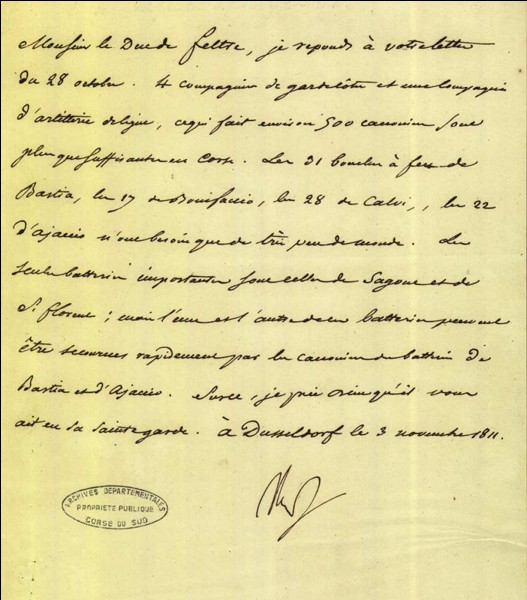 Monsieur le Duc de feltre, je reponds à votre lettre
du 28 octobre. 4 compagnies de gardecôtes et une compagnie
d'artillerie de ligne, ce qui fait environ 500 canoniers sont
plus que suffisantes en Corse. Les 31 bouches à feu de
Bastia, les 17 de Bonifaccio, les 28 de Calvi, les 22
d'ajaccio n'ont besoin que de très peu de monde. Les
seules batteries importantes sont celles de Sagone et de
St florent; mais l'une et l'autre de ces batteries peuvent
être secourues rapidement par les canoniers des batteries de
Bastia et d'Ajaccio. Sur ce, je prie dieu qu'il vous
ait en sa sainte garde. à Dusseldorf le 3 novembre 1811.
ARCHIVES DEPARTEMENTALES
PROPRIETE PUBLIQUE
CORSE DU SUD